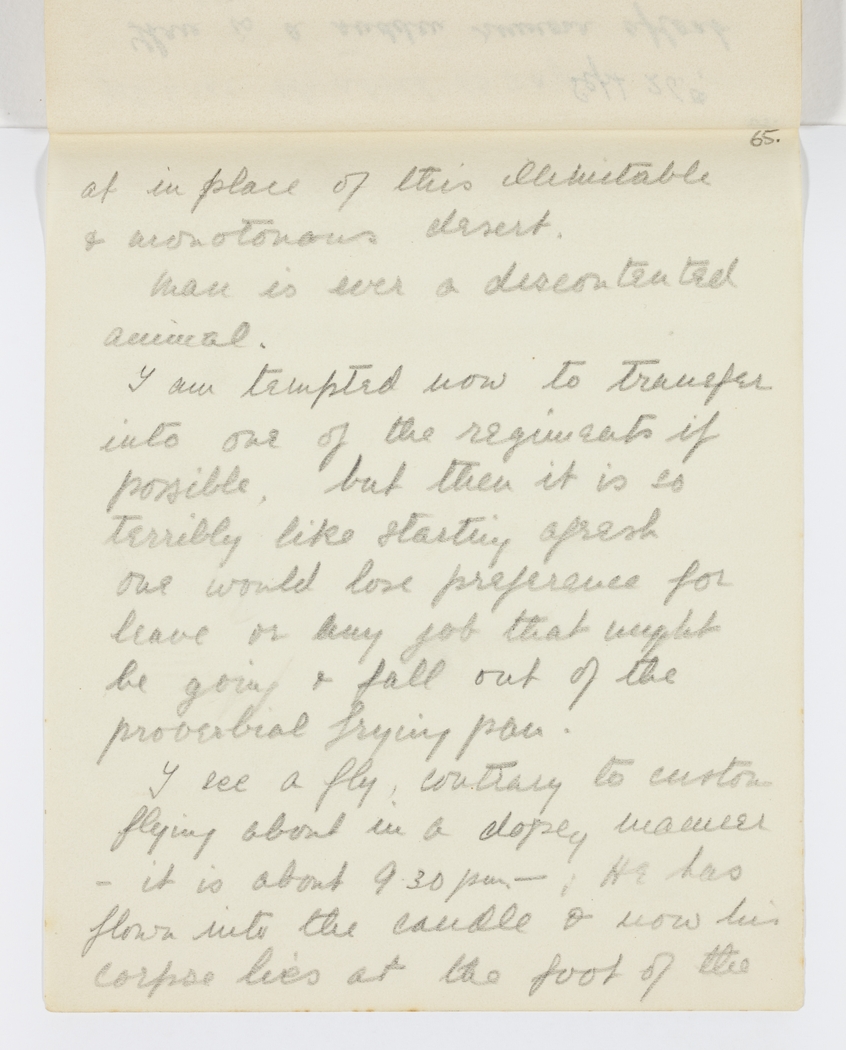 65.
at in place of this illimitable
& monotonous desert.
Man is ever a discontented
animal.
I am tempted now to transfer
into one of the regiments if
possible, but then it is so
terribly like starting afresh
one would lose preference for
leave or any job that might
be going & fall out of the
proverbial frying pan.
I see a fly, contrary to custom
flying about in a dopey manner
- it is about 9.30 pm - ; He has
flown into the candle & now his
corpse lies at the foot of the